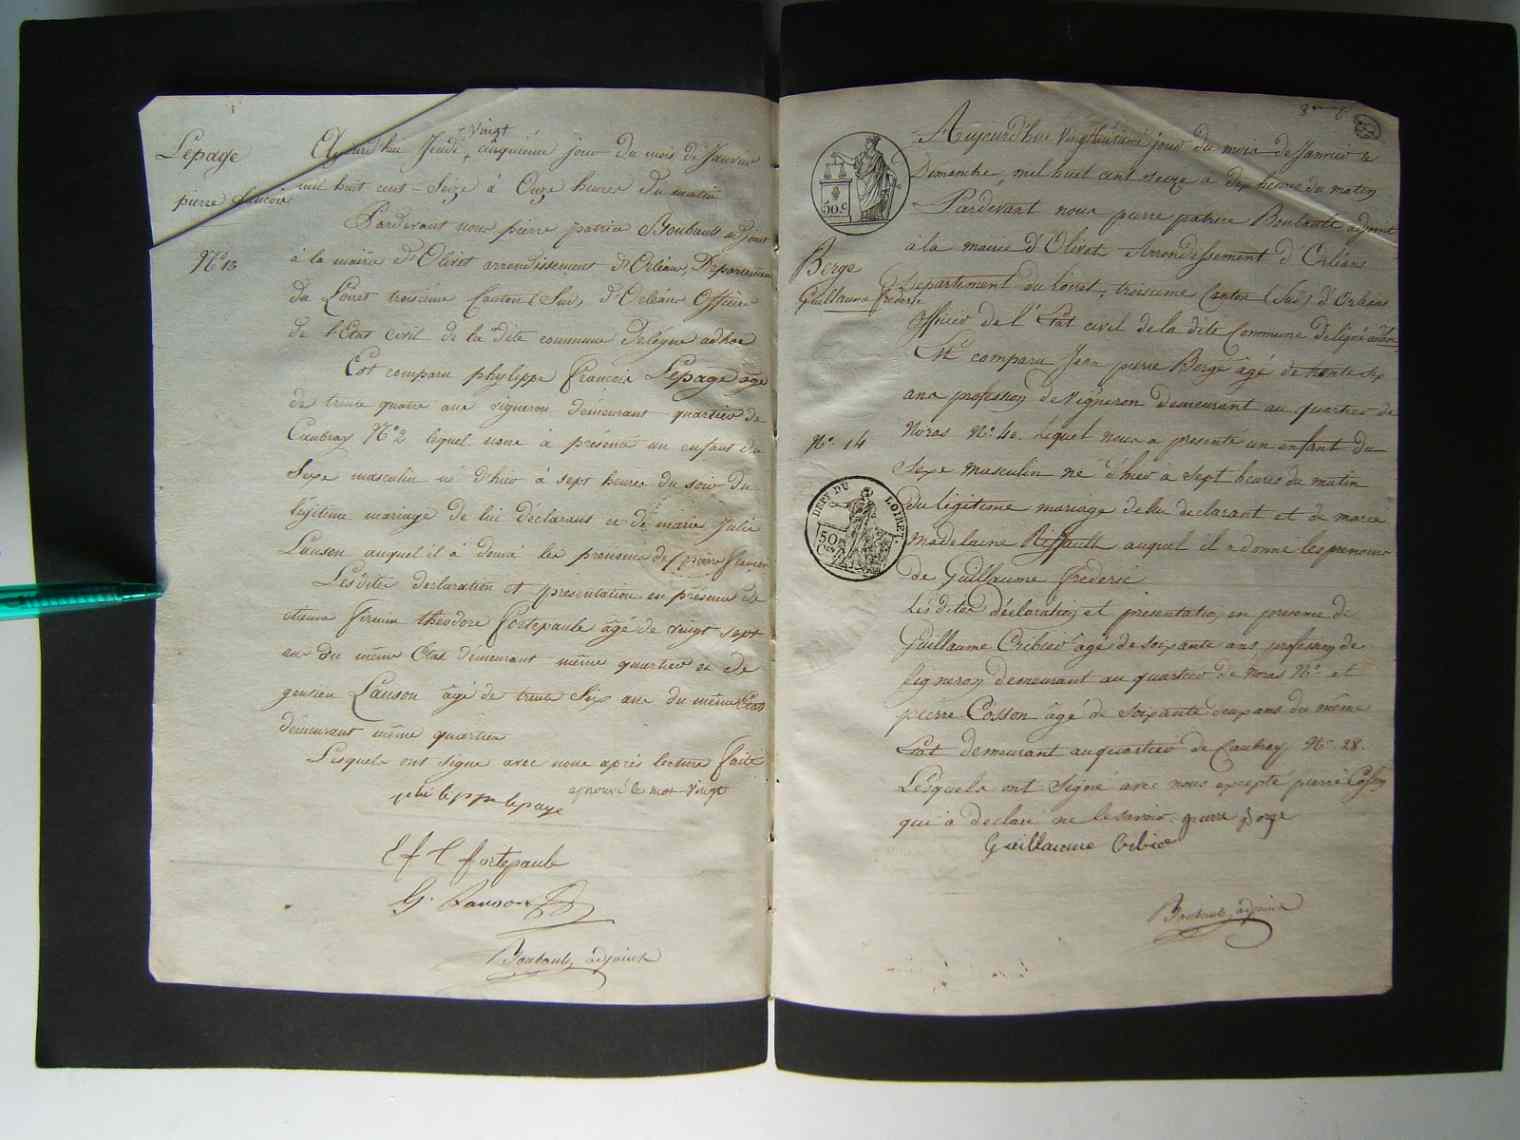 Lepage
pierre
N° 13
Aujourd'hui Jeudi vingt cinquième jour du mois de Janvier
mil huit cent Seize à Onze heures du matin
Pardevant nous pierre patrice Boubault adjoint
à la mairie d'Olivet arrondissement d'Orléans, Département
du Loiret troisième Canton (Sud) d'Orléans Officier
de l'Etat civil de la dite commune Delegué adhoc
Est comparu phylippe francois Lepage âgé
de trente quatre ans vigneron demeurant quartier de
Caubray N° 2 lequel nous à présenté un enfant du
Sexe masculin né d'hier à sept heures du soir du
légitime mariage de lui déclarant et de marie Julie
Lanson auquel il à donné les prenoms de pierre
Lesdites declaration et presentation en présence de
etienne firmin théodore fortepaule âgé de vingt sept
ans du même Etat demeurant même quartier et de
Lanson âgé de trente Six ans du même Etat
demeurant même quartier
Lesquels ont signé avec nous après lecture faite
aprouvé le mot vingt
philippe lepage
E f t fortepaule
G. Lanson
Boubault adjoint
50 C
Berge
Guillaume frederic
N° 14
DEPT DU LOIRET
50 Cen
Aujourd'hui Vingthuitieme jour du mois de Janvier le
Dimanche, mil huit cent seize a dix heures du matin
Pardevant nous pierre patrice Boubault adjoint
à la mairie d'Olivet Arrondissement d'Orléans
Departement du loiret, troisieme Canton (Sud) d'Orléans
officier de l'Etat civil de la dite Commune délégué adhoc
Est comparu Jean pierre Bergé âgé de trente six
ans profession de Vigneron demeurant au quartier de
Noras N° 40. lequel nous a presenté un enfant du
Sexe masculin né d'hier a sept heures du matin
du légitime mariage de lui declarant et de marie
Madelaine Riffault auquel il a donné les prenoms
de Guillaume frederic
Les dites déclaration et presentation en presence de
Guillaume Cribier âgé de soixante ans profession de
Vigneron demeurant au quartier de Noras N° et
pierre Cosson âgé de soixante deux ans du même
Etat demeurant au quartier de Caubray N° 28.
Lesquels ont Signé avec nous excepté pierre Cosson
qui a declaré ne le savoir. pierre berge
Guillaume Cribier
Boubault adjoint